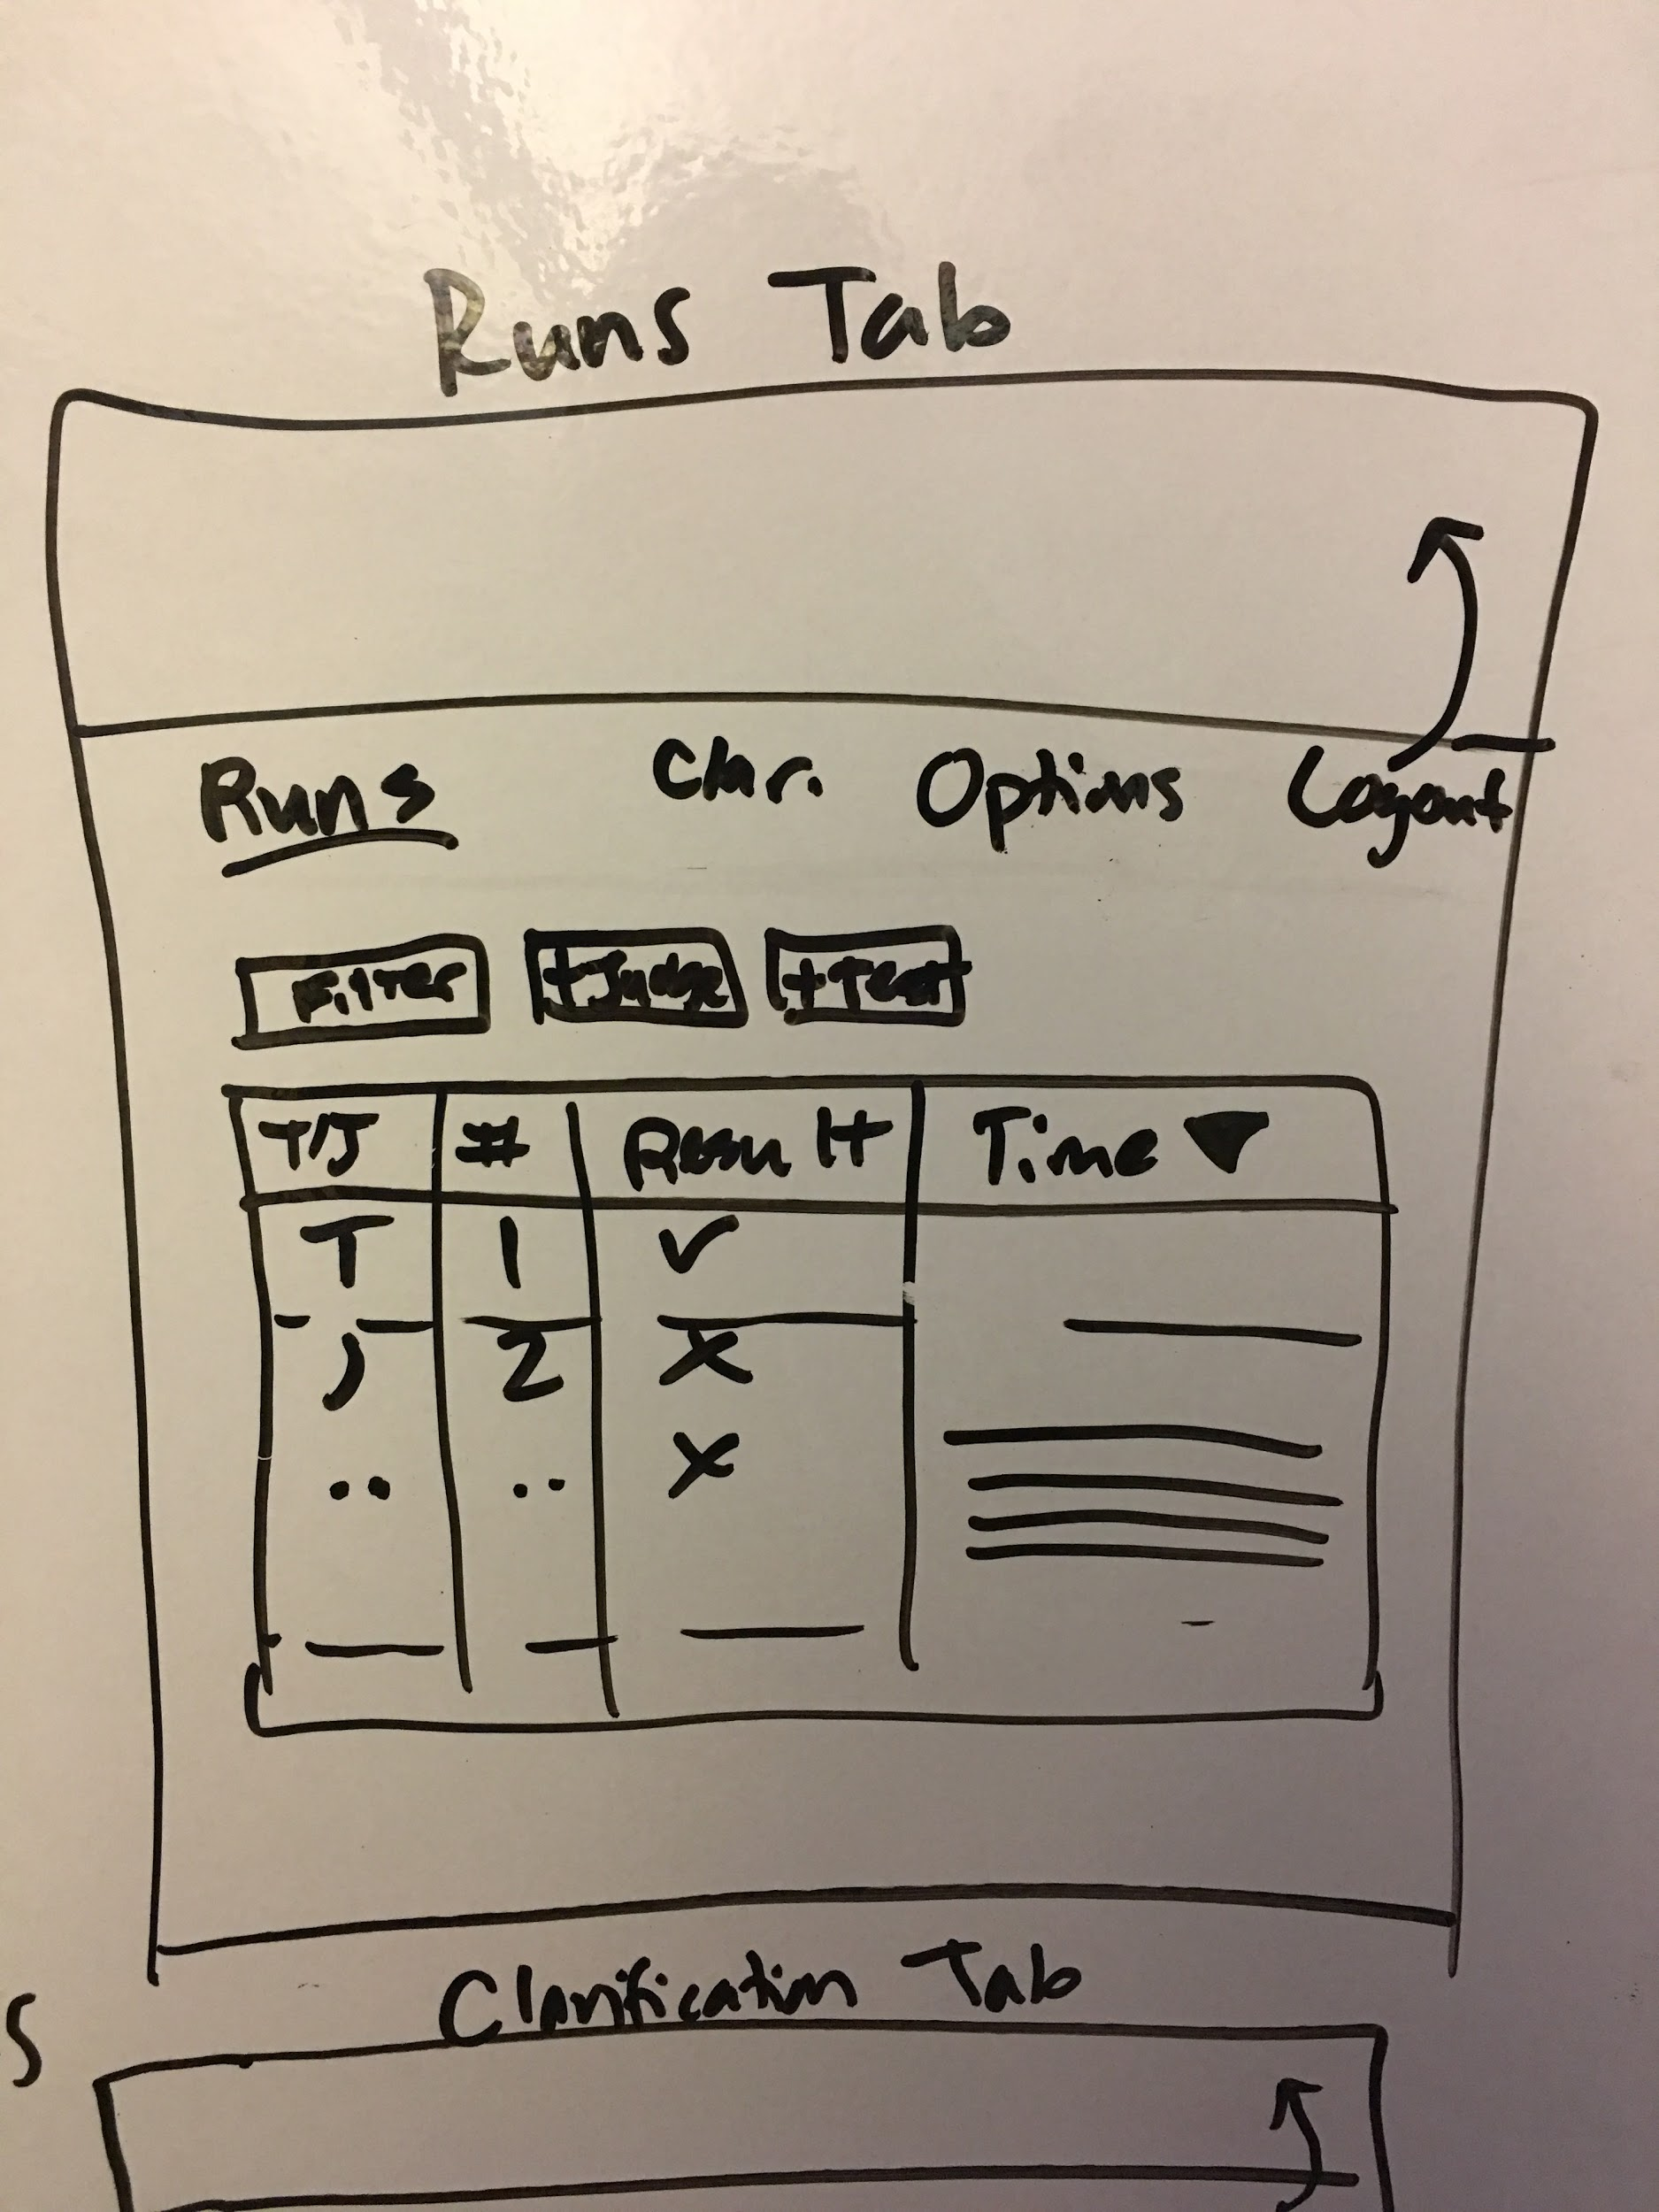 Runs Tab
Runs Clar. Options Logout
Filter +Judge +Test
T/J # Result Time ▼
T 1 ✓
J 2 X
.. .. X
Clarification Tab
s